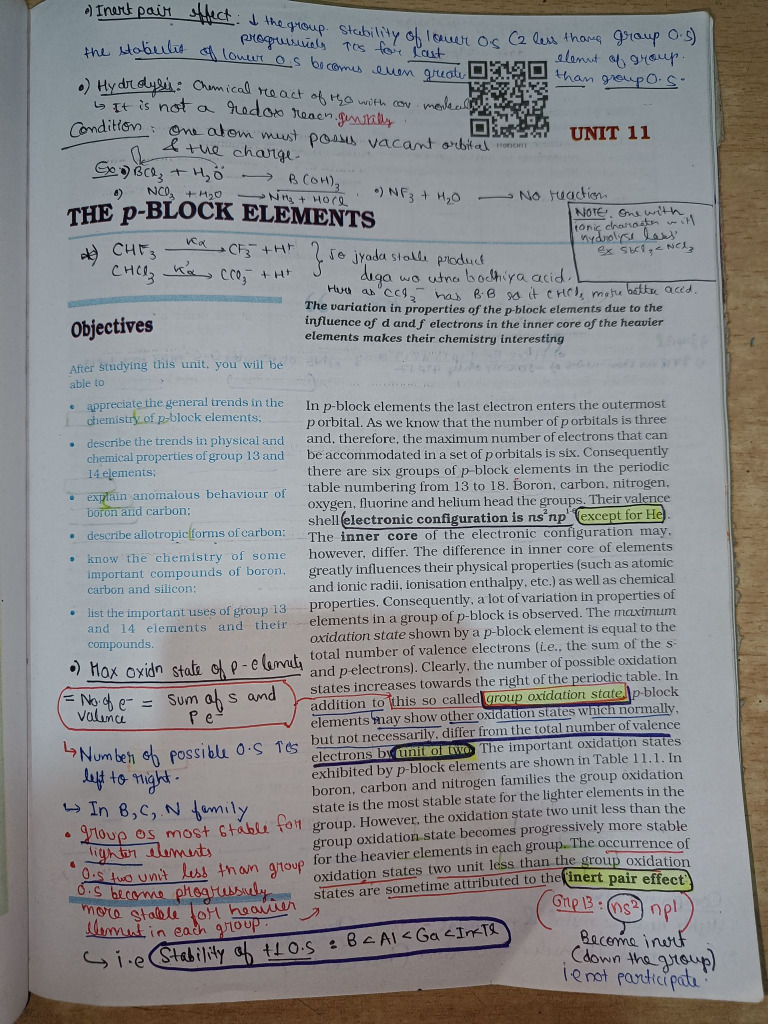 •) Inert pair effect: ↓ the group stability of lower O.S (2 less than group O.S)
progressively ↑es for last element of group.
the stability of lower O.S becomes even greater than group O.S.
•) Hydrolysis: Chemical react of H2O with cov. molecule
↳ It is not a redox reacn. generally
Condition: one atom must posses vacant orbital
& +ve charge.
UNIT 11
Ex •) BCl3 + H2O → B(OH)3
•) NCl3 + H2O → NH3 + HOCl •) NF3 + H2O → No reaction
THE p-BLOCK ELEMENTS
NOTE: One with
ionic character will
hydrolyse less
Ex SbCl3 < NCl3
CHF3 → CF3- + H+
CHCl3 → CCl3- + H+
Jo jyada stable product
dega wo utna badhiya acid.
Here as CCl3- has B.B so it CHCl3 more better acid.
The variation in properties of the p-block elements due to the
influence of d and f electrons in the inner core of the heavier
elements makes their chemistry interesting
Objectives
After studying this unit, you will be
able to
• appreciate the general trends in the
chemistry of p-block elements;
• describe the trends in physical and
chemical properties of group 13 and
14 elements;
• explain anomalous behaviour of
boron and carbon;
• describe allotropic forms of carbon;
• know the chemistry of some
important compounds of boron,
carbon and silicon;
• list the important uses of group 13
and 14 elements and their
compounds.
•) Max oxidn state of p-elements
= No. of e- = Sum of s and
valence p e-
↳ Number of possible O.S ↑es
left to right.
↳ In B, C, N family
• group os most stable for
lighter elements
• O.S two unit less than group
O.S become progressively
more stable for heavier
element in each group.
↳ i.e Stability of +1 O.S : B < Al < Ga < In < Tl
In p-block elements the last electron enters the outermost
p orbital. As we know that the number of p orbitals is three
and, therefore, the maximum number of electrons that can
be accommodated in a set of p orbitals is six. Consequently
there are six groups of p-block elements in the periodic
table numbering from 13 to 18. Boron, carbon, nitrogen,
oxygen, fluorine and helium head the groups. Their valence
shell electronic configuration is ns2np1-6 (except for He).
The inner core of the electronic configuration may,
however, differ. The difference in inner core of elements
greatly influences their physical properties (such as atomic
and ionic radii, ionisation enthalpy, etc.) as well as chemical
properties. Consequently, a lot of variation in properties of
elements in a group of p-block is observed. The maximum
oxidation state shown by a p-block element is equal to the
total number of valence electrons (i.e., the sum of the s-
and p-electrons). Clearly, the number of possible oxidation
states increases towards the right of the periodic table. In
addition to this so called group oxidation state, p-block
elements may show other oxidation states which normally,
but not necessarily, differ from the total number of valence
electrons by unit of two. The important oxidation states
exhibited by p-block elements are shown in Table 11.1. In
boron, carbon and nitrogen families the group oxidation
state is the most stable state for the lighter elements in the
group. However, the oxidation state two unit less than the
group oxidation state becomes progressively more stable
for the heavier elements in each group. The occurrence of
oxidation states two unit less than the group oxidation
states are sometime attributed to the 'inert pair effect'
Grp 13: ns2 np1
Become inert
(down the group)
i.e not participate.